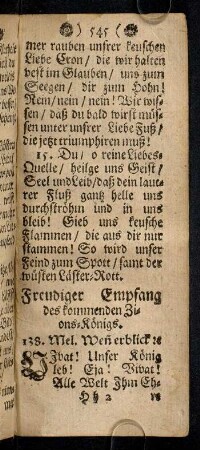 545
mer rauben unsrer keuschen
Liebe Cron / die wir halten
vest im Glauben / uns zum
Seegen / dir zum Hohn!
Nein / nein / nein! Wie wis-
sen / daß du bald wirst müs-
sen unter unsrer Liebe Fuß /
die jetzt triumphiren muß!
15. Du / o reine Liebes-
Quelle / heilge uns Geist /
Seel und Leib / daß dein laut-
rer Fluß gantz helle uns
durchströhm und in uns
bleib! Gieb uns keusche
Flammen / die aus dir nur
stammen! So wird unser
Feind zum Spott / samt der
wüsten Laster-Rott.
Freudiger Empfang
des kommenden Zi-
ons-Königs.
138. Mel. Weñ erblick ꝛc
Vivat! Unser König
leb! Eja! Vivat!
Alle Welt Ihm Eh-
Hh 2